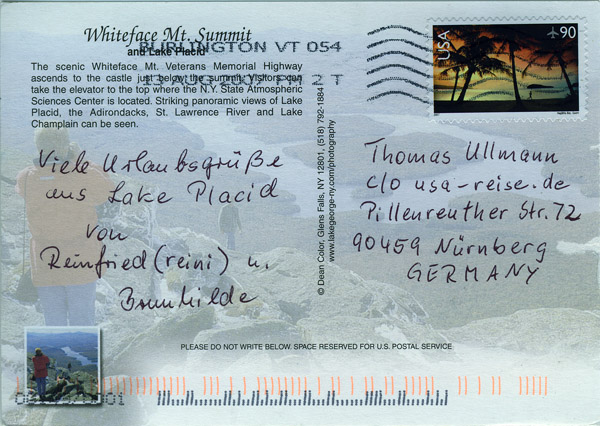 Whiteface Mt. Summit
and Lake Placid
BURLINGTON VT 054
PM 2 T
The scenic Whiteface Mt. Veterans Memorial Highway
ascends to the castle just below the summit. Visitors can
take the elevator to the top where the N.Y. State Atmospheric
Sciences Center is located. Striking panoramic views of Lake
Placid, the Adirondacks, St. Lawrence River and Lake
Champlain can be seen.
USA
90
Viele Urlaubsgrüße
aus Lake Placid
von
Reinfried (reini) u.
Brunhilde
© Dean Color, Glens Falls, NY 12801, (518) 792-1884
www.lakegeorge-ny.com/photography
Thomas Ullmann
c/o usa-reise.de
Pillenreuther Str. 72
90459 Nürnberg
GERMANY
PLEASE DO NOT WRITE BELOW. SPACE RESERVED FOR U.S. POSTAL SERVICE